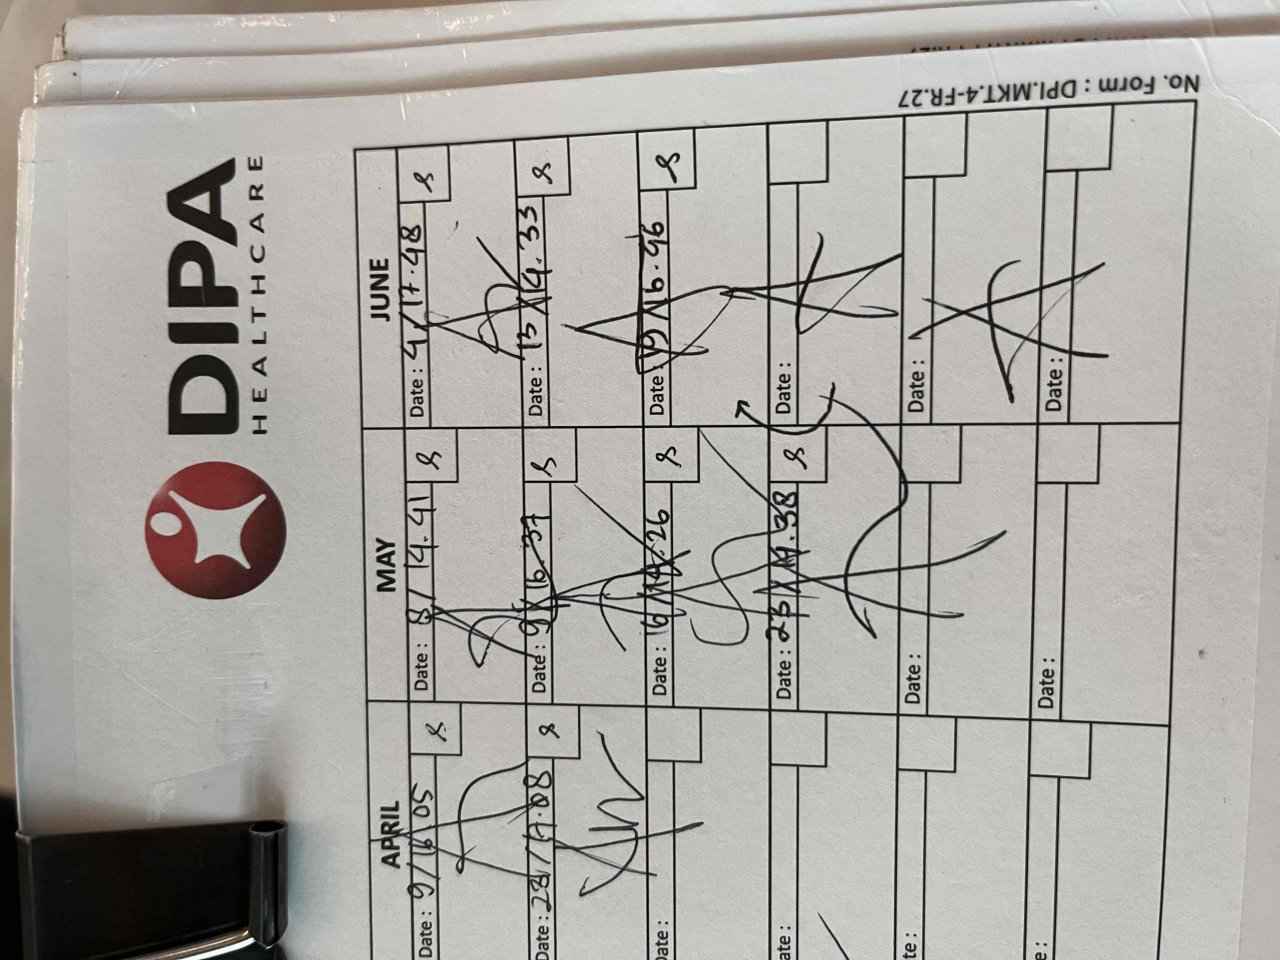 DIPA
HEALTHCARE
No. Form : DPI.MKT.4-FR.27
APRIL MAY JUNE
Date : 9/16 05 Date : 8/ 14.41 Date : 4/17.48
Date : 28/17.08 Date : 9/16.37 Date : 13/14.33
Date : Date : 16/14.26 Date : 19/16.46
ate : Date : 23/14.38 Date :
te : Date : Date :
e : Date : Date :